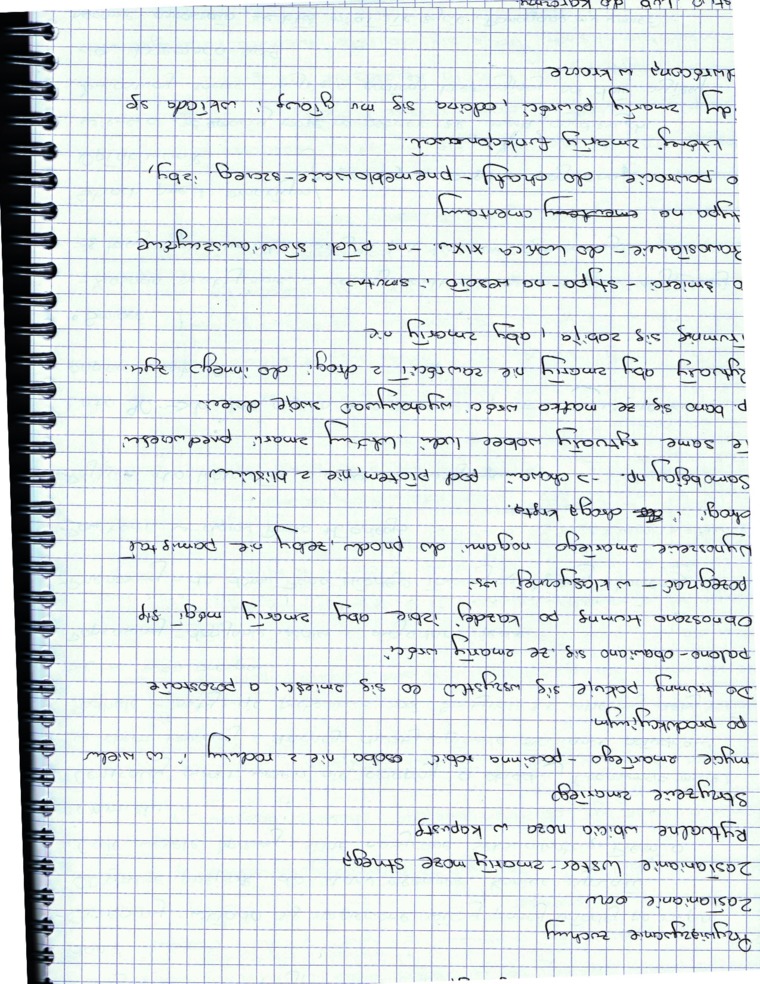 Przywiązywanie żuchwy
zasłanianie oczu
zasłanianie luster - zmarły może straszyć
Rytualne wbicie noża w kapustę
Strzyżenie zmarłego
mycie zmarłego - powinna robić osoba nie z rodziny i w wieku
po produkcyjnym.
Do trumny pakuje się wszystko co się zmieści a pozostałe
palono - obawiano się, że zmarły wróci
Obnoszono trumnę po każdej izbie aby zmarły mógł się
pożegnać - w klasycznej wsi
Wynoszenie zmarłego nogami do przodu, żeby nie pamiętał
drogi i drogą krętą.
Samobójcy np. -> chowani pod płotem, nie z bliskimi
Te same rytuały wobec ludzi, którzy zmarli przedwcześnie
bano się, że matka wróci wychowywać swoje dzieci
rytuały aby zmarły nie zawrócił z drogi do innego życia.
Trumnę się zabija, aby zmarły nie
o śmierci - stypa - na wesoło i smutno
- do końca XIXw. - na płd. słowiańszczyźnie
typa na cmentarny cmentarny
o powrocie do chaty - przemeblowanie - szczeg. izby,
której zmarły funkcjonował.
dy zmarły powróci, odcina się mu głowę i wkłada się
zwróconą w krocze
lub do karczmy